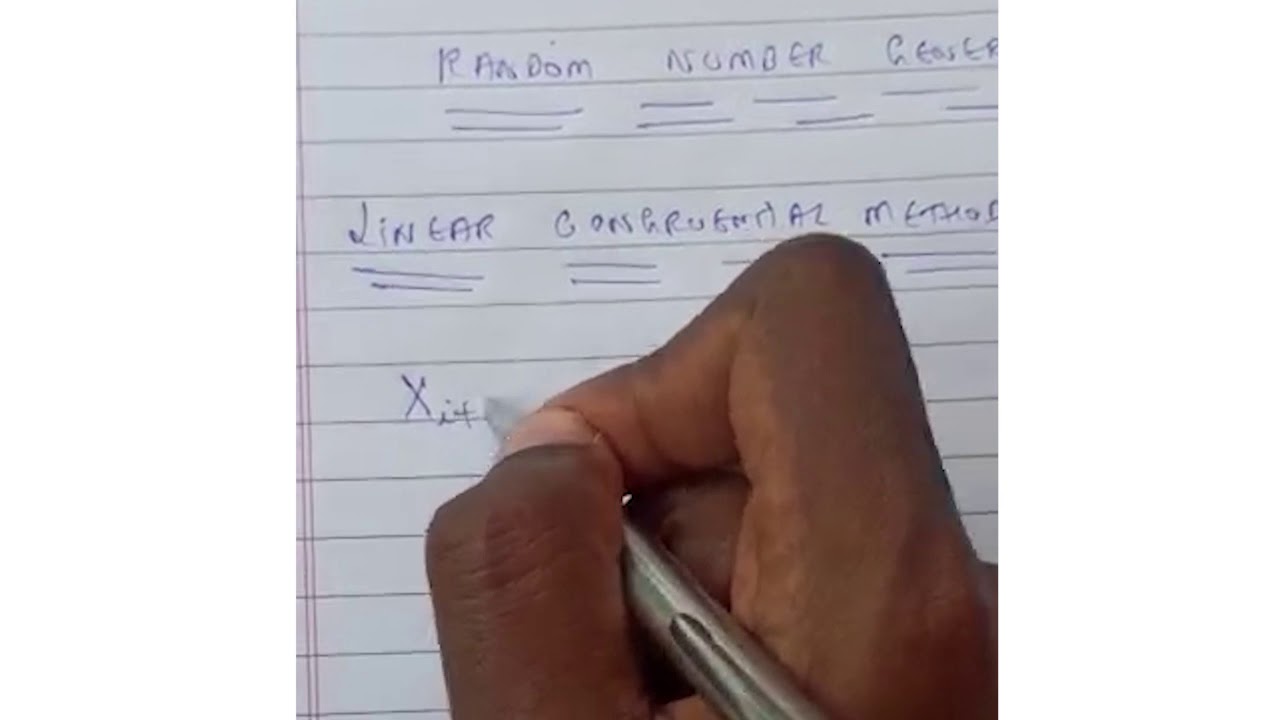 RANDOM NUMBER GENER
LINEAR CONGRUENTIAL METHOD
Xi+